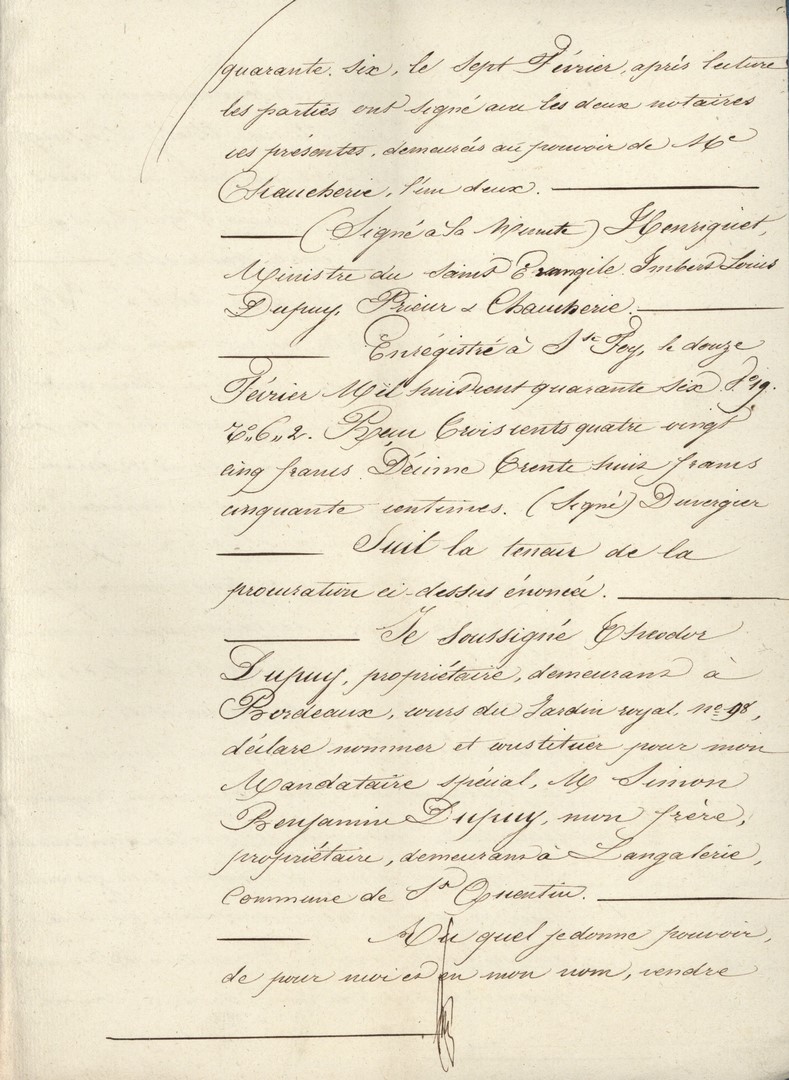 quarante six, le sept Février, après lecture
les parties ont signé avec les deux notaires
ces présentes, demeurées au pouvoir de Me
Chaucherie, l'un deux.
(Signé à la Minute) Henriquet,
Ministre du Saint Evangile Imbert Louis
Dupuy, Prieur & Chaucherie.
Enrégistré à Ste Foy, le douze
Février Mil huit cent quarante six. fo 19.
Ro Co 2. Reçu Trois cents quatre vingt
cinq francs Décime Trente huit francs
cinquante centimes. (Signé) Duvergier
Suit la teneur de la
procuration ci-dessus énoncée.
Je soussigné Theodor
Dupuy, propriétaire, demeurant à
Bordeaux, cours du Jardin royal, no 98,
déclare nommer et constituer pour mon
Mandataire spécial, M Simon
Benjamin Dupuy, mon frère,
propriétaire, demeurant à Langalerie,
Commune de St Quentin.
Au quel je donne pouvoir,
de pour moi et en mon nom, vendre